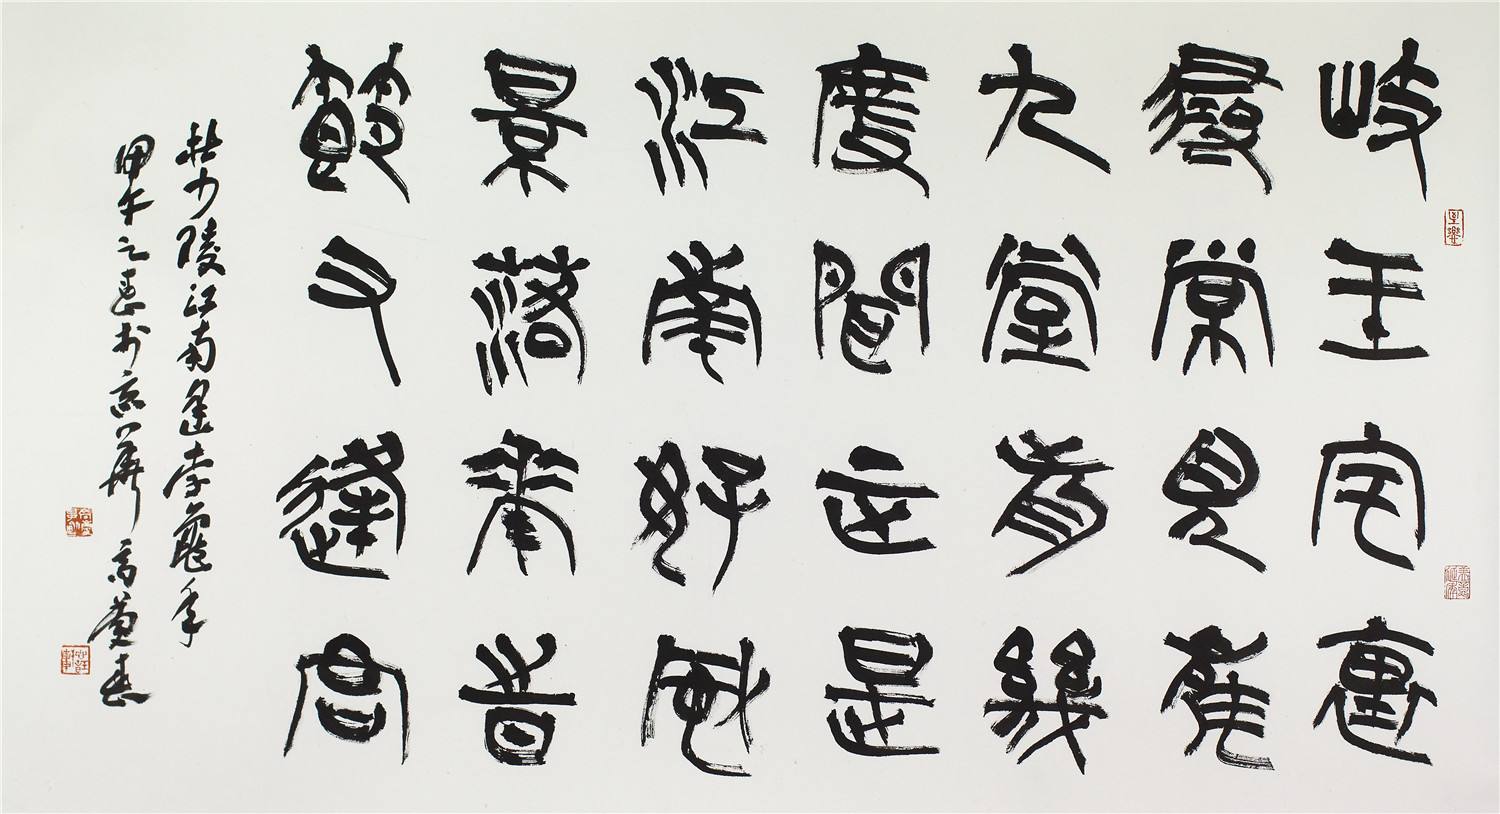 岐王宅裏
尋常見崔
九堂前幾
度聞正是
江南好風
景落花時
節又逢君
杜少陵江南逢李龜年
甲午之春於京華高慶春